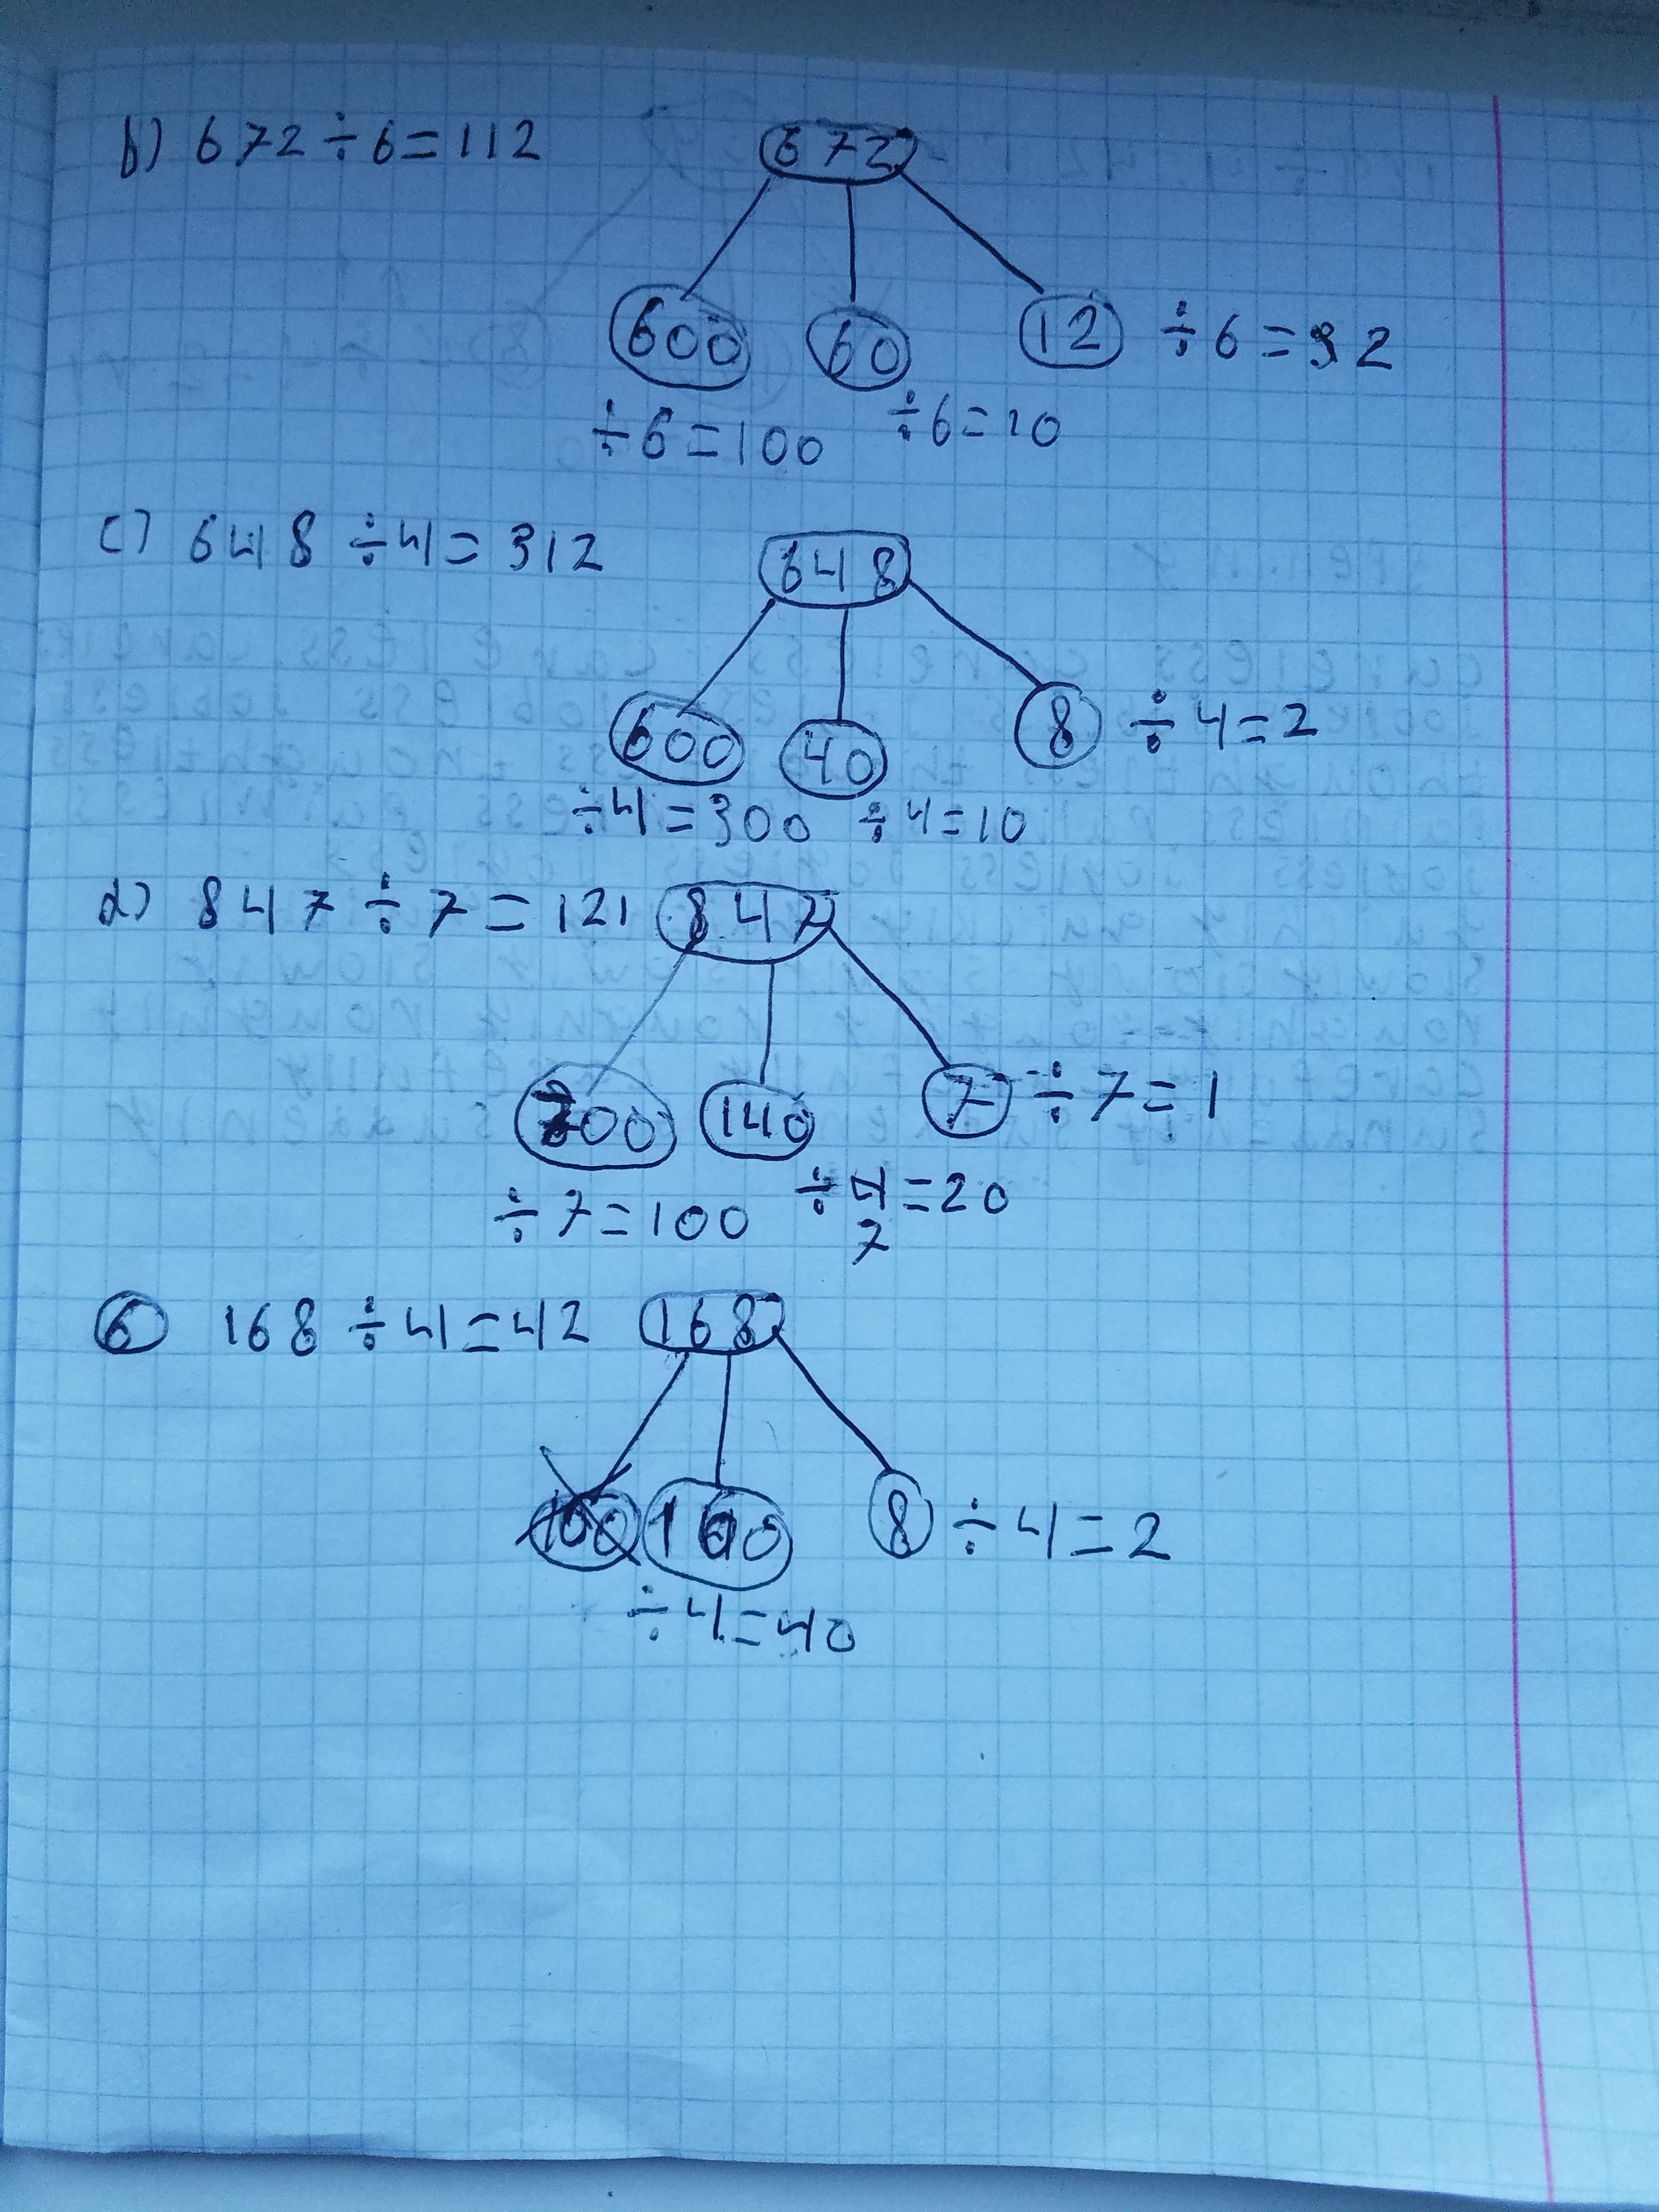 b) 672 ÷ 6 = 112 672
600 60 12 ÷ 6 = 2
÷ 6 = 100 ÷ 6 = 10
c) 648 ÷ 4 = 312 648
600 40 8 ÷ 4 = 2
÷ 4 = 300 ÷ 4 = 10
d) 847 ÷ 7 = 121 847
700 140 7 ÷ 7 = 1
÷ 7 = 100 ÷ 4 = 20
7
6 168 ÷ 4 = 42 168
100 160 8 ÷ 4 = 2
÷ 4 = 40